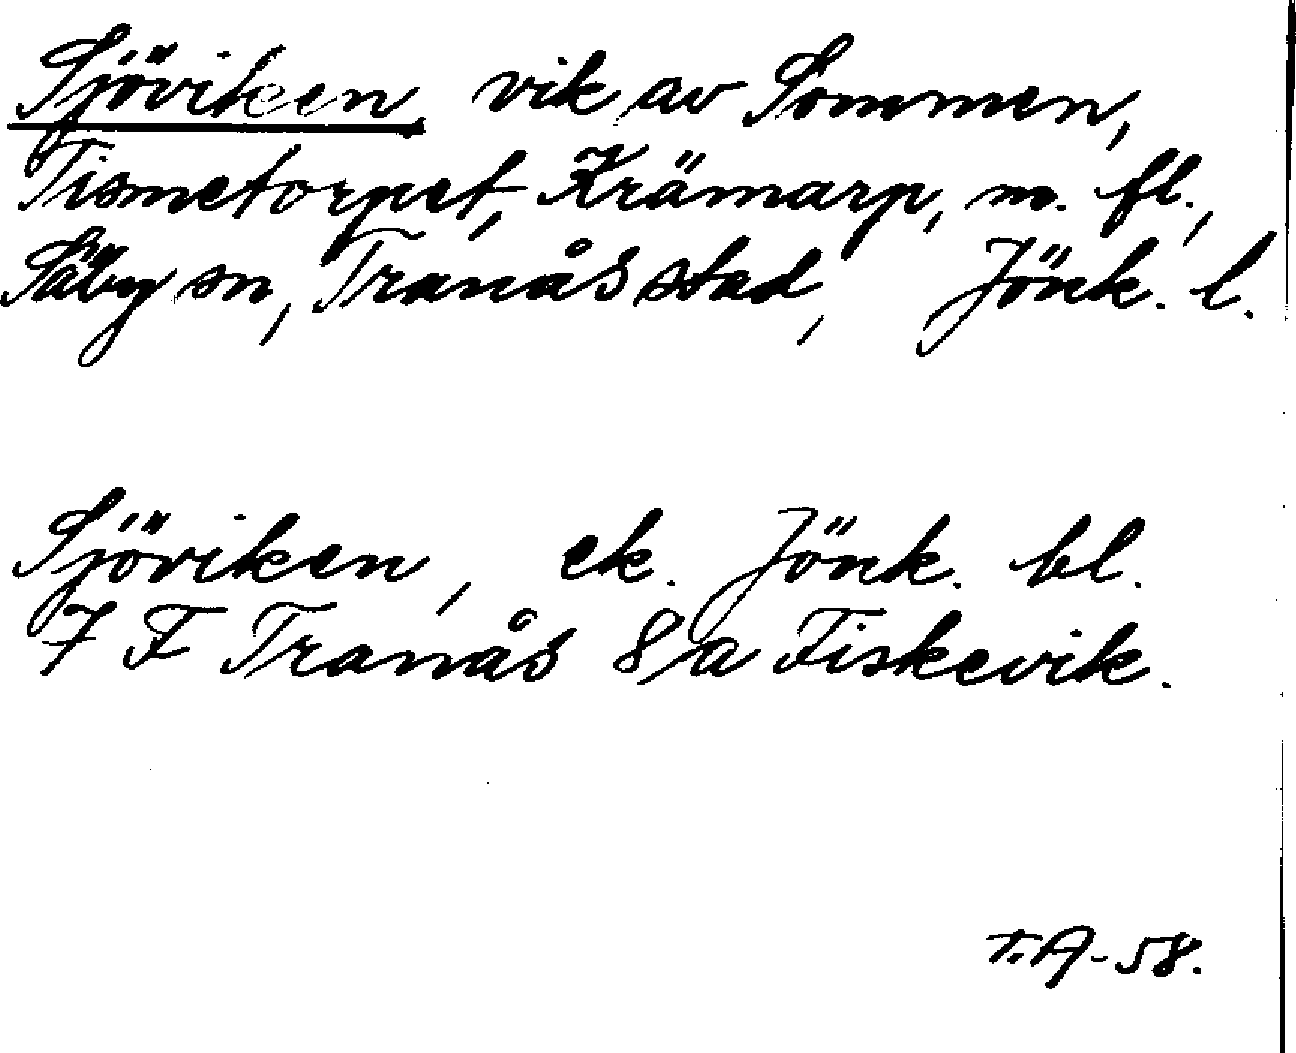 Sjöviken, vik av Sommen,
Tismetorpet, Krämarp, m. fl.,
Säby sn, Tranås stad, Jönk. l.
Sjöviken, ek. Jönk. bl.
7 F Tranås 8/a Fiskevik.
T.A-58.